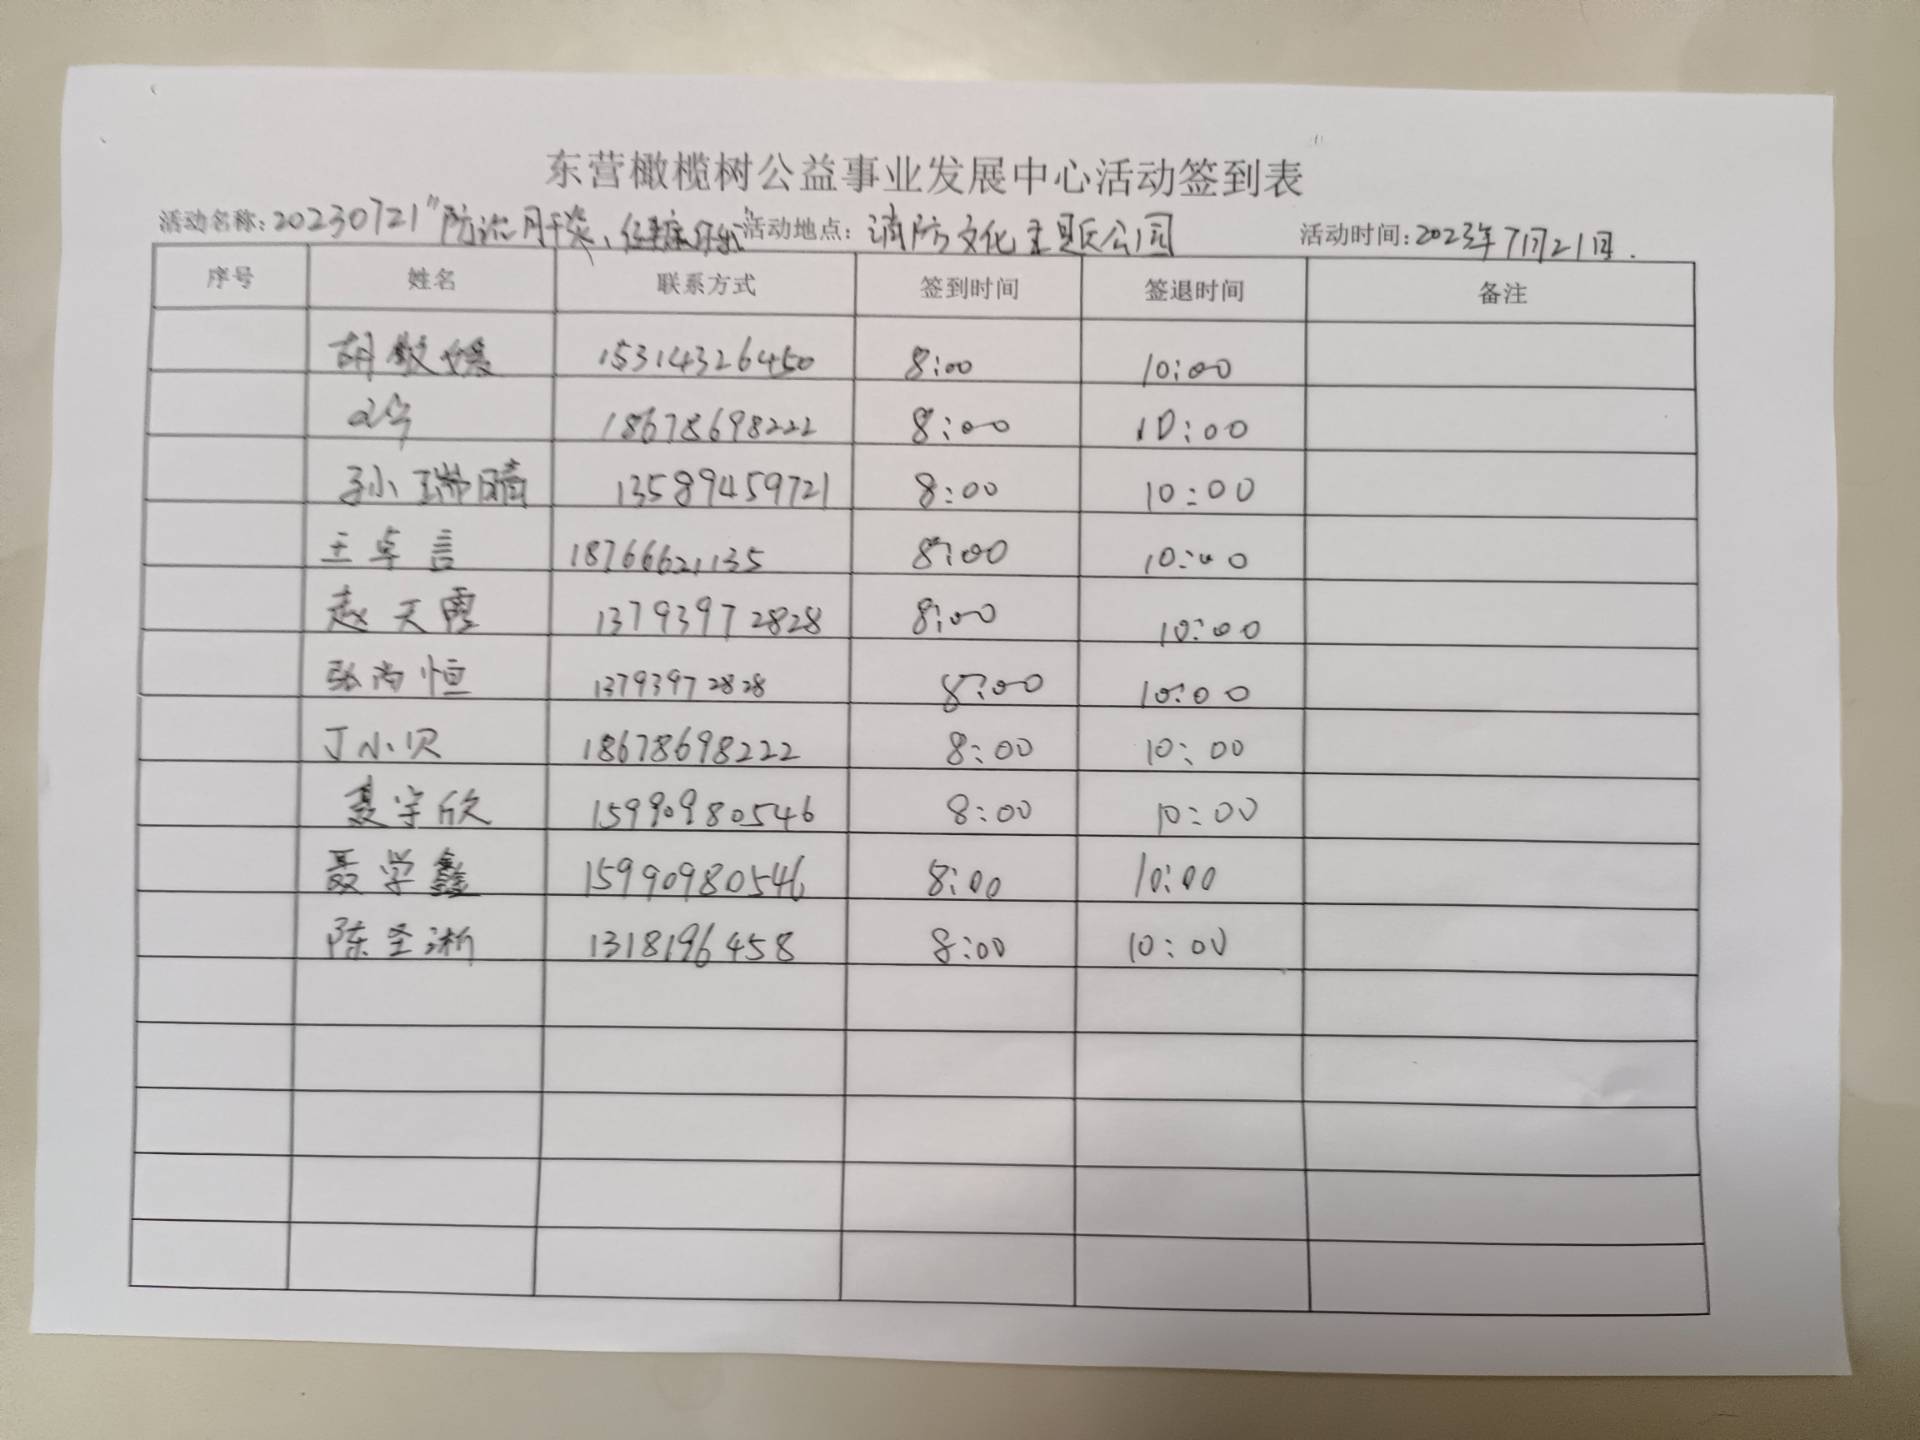 东营橄榄树公益事业发展中心活动签到表
活动名称:20230721"防治肝炎、健康 活动地点: 消防文化主题公园 活动时间:2023年7月21日.
序号 姓名 联系方式 签到时间 签退时间 备注
胡敬媛 15314326450 8:00 10:00
18678698222 8:00 10:00
孙瑞晴 13589459721 8:00 10:00
王卓言 18766621135 8:00 10:00
赵天霞 13793972828 8:00 10:00
张尚恒 13793972828 8:00 10:00
丁小贝 18678698222 8:00 10:00
聂宇欣 15990980546 8:00 10:00
聂学鑫 15990980546 8:00 10:00
陈圣淅 1318196458 8:00 10:00